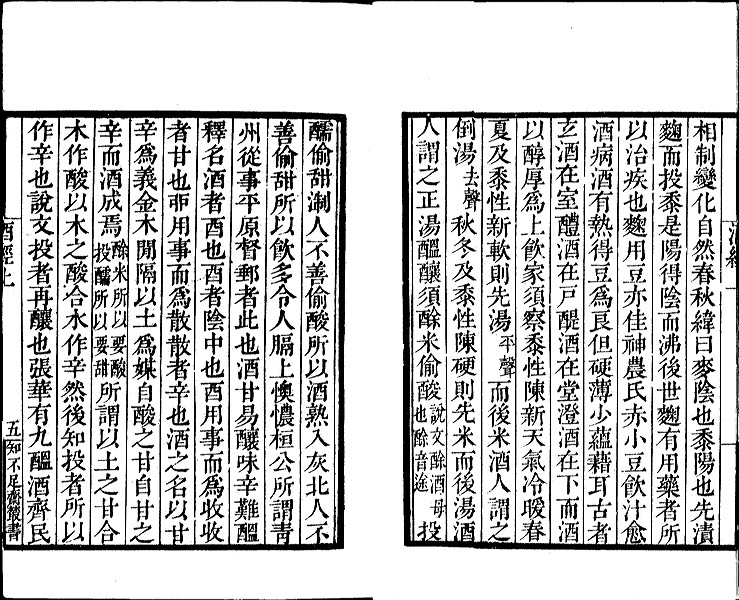 相制變化自然春秋緯曰麥陰也黍陽也先漬
麴而投黍是陽得陰而沸後世麴有用藥者所
以治疾也麴用豆亦佳神農氏赤小豆飲汁愈
酒病酒有熱得豆爲良但硬薄少蘊藉耳古者
玄酒在室醴酒在戸醍酒在堂澄酒在下而酒
以醇厚爲上飲家須察黍性陳新天氣冷暖春
夏及黍性新軟則先湯平聲而後米酒人謂之
倒湯去聲秋冬及黍性陳硬則先米而後湯酒
人謂之正湯醞釀須酴米偷酸說文酴酒母也酴音途投
醹偷甜淛人不善偷酸所以酒熟入灰北人不
善偷甜所以飲多令人膈上懊憹桓公所謂靑
州從事平原督郵者此也酒甘易釀味辛難醞
釋名酒者酉也酉者陰中也酉用事而爲收收
者甘也卯用事而爲散散者辛也酒之名以甘
辛爲義金木閒隔以土爲媒自酸之甘自甘之
辛而酒成焉酴米所以要酸投醹所以要甜所謂以土之甘合
木作酸以木之酸合水作辛然後知投者所以
作辛也說文投者再釀也張華有九醞酒齊民
酒經上
五
知不足齋叢書